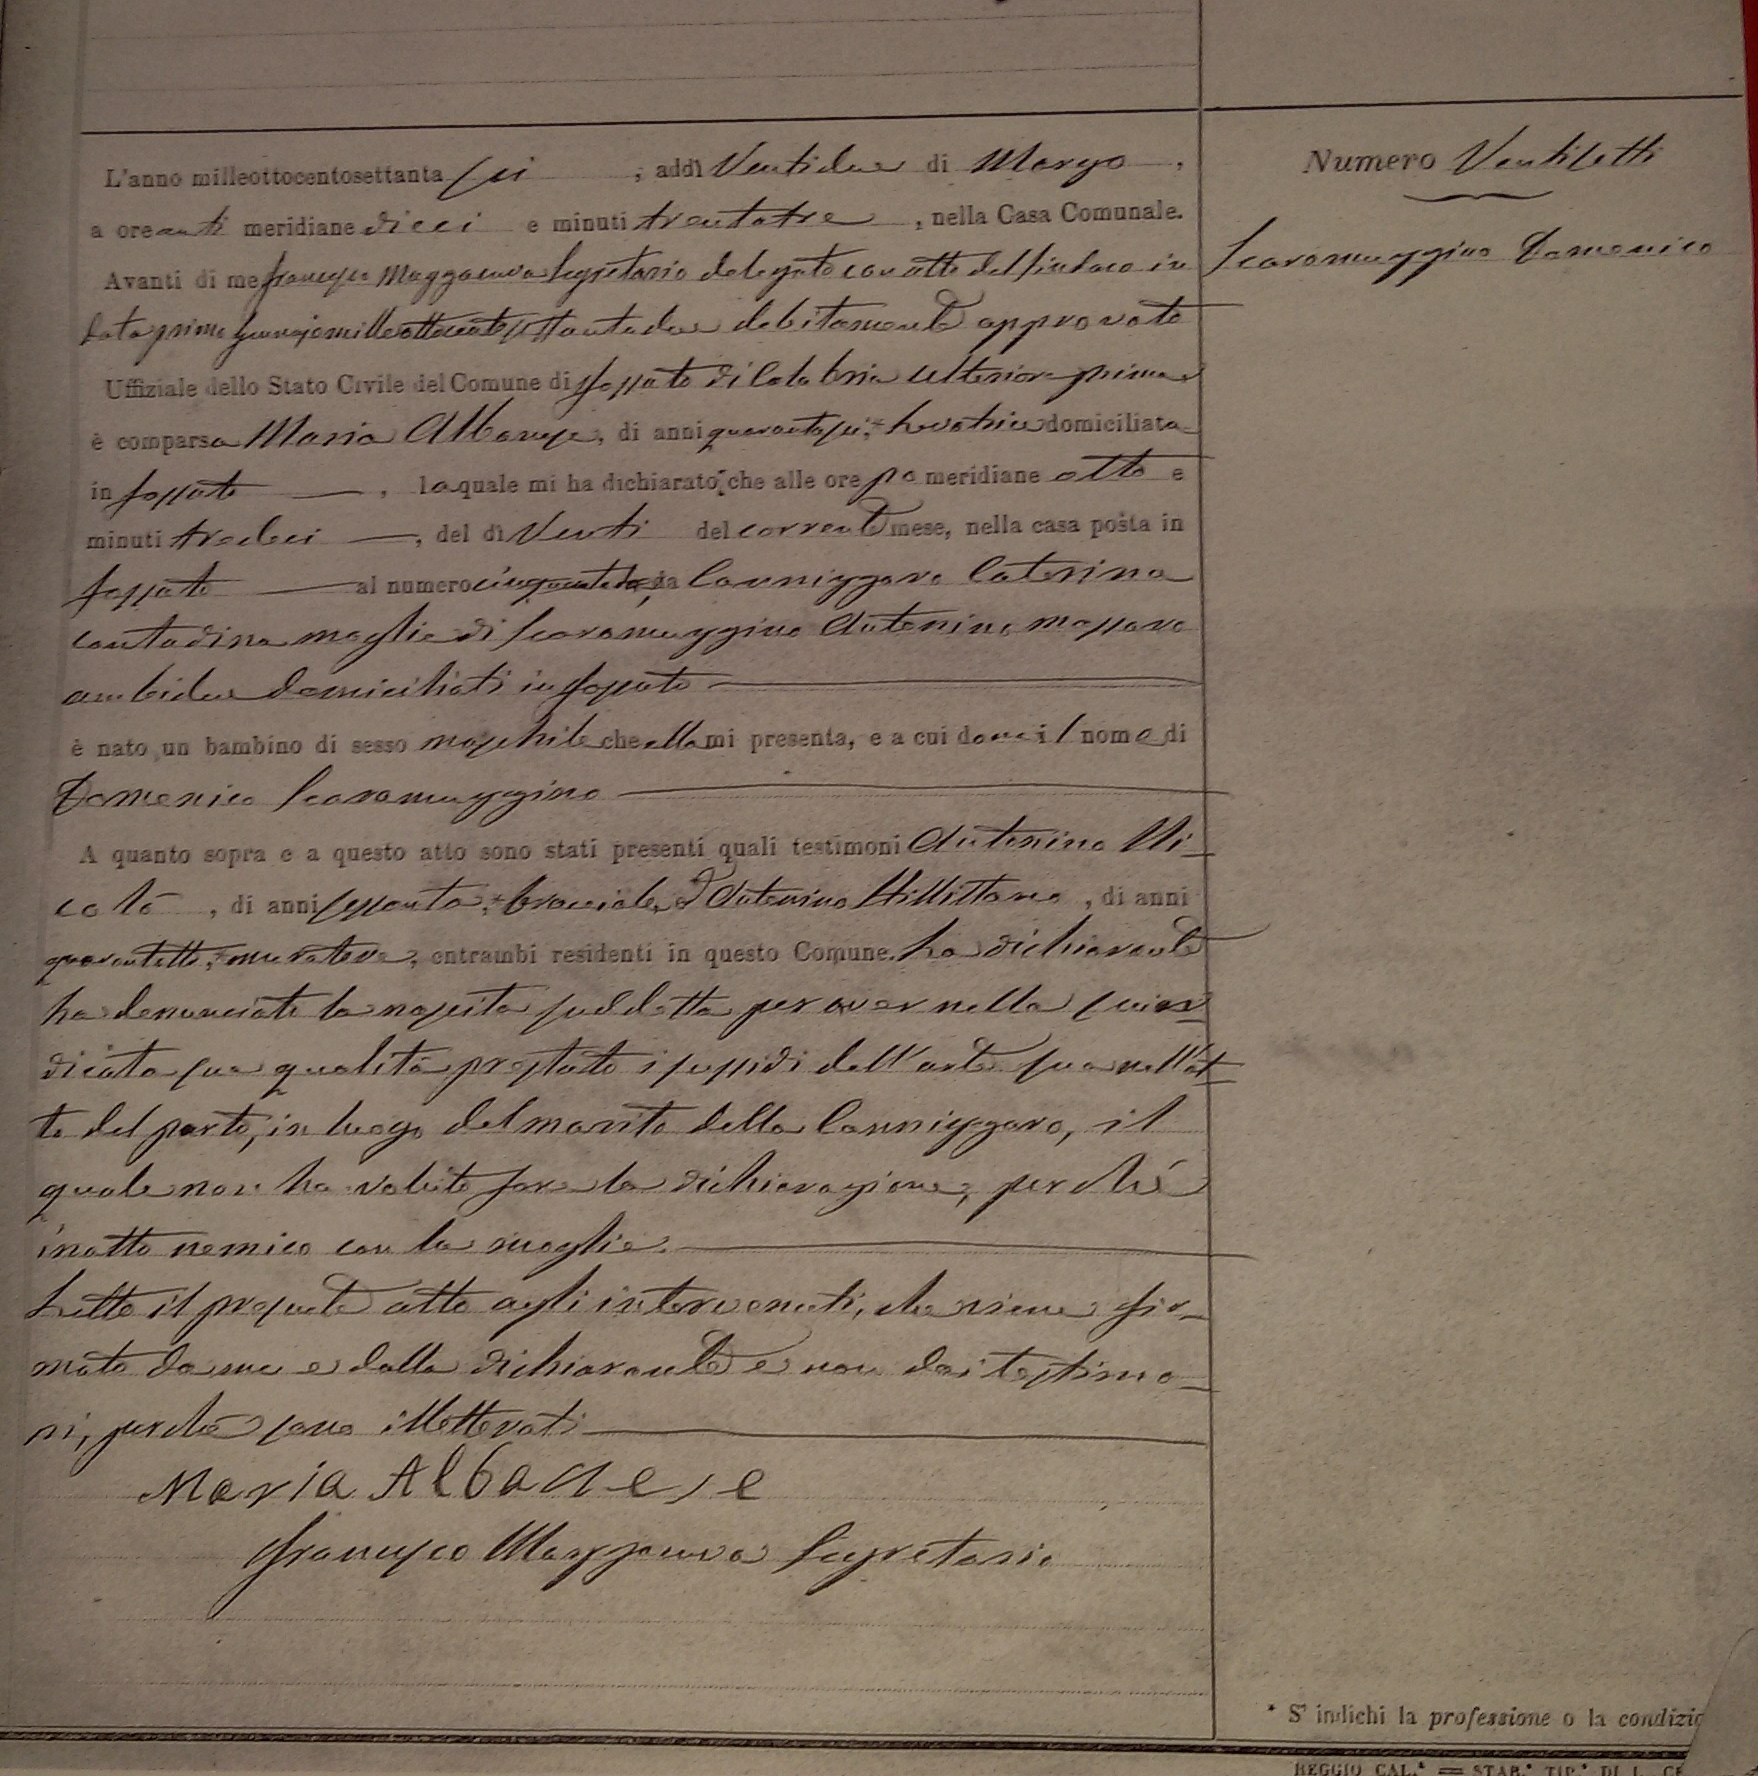 L'anno milleottocentosettanta sei , addì Ventidue di Marzo ,
a ore anti meridiane dieci e minuti trentatre , nella Casa Comunale.
Avanti di me Francesco Mazzacuva Segretario delegato con atto del Sindaco in
data primo Gennajo milleottocentosettantadue debitamente approvato
Uffiziale dello Stato Civile del Comune di Fossato di Calabria Ulteriore prima
è comparsa Maria Albanese, di anni quarantasei,* levatrice domiciliata
in Fossato , la quale mi ha dichiarato, che alle ore po meridiane otto e
minuti tredici , del dì Venti del corrente mese, nella casa posta in
Fossato al numero da Cannizzaro Caterina
contadina moglie di Scaramuzzino Antonino massaro
ambidue domiciliati in Fossato
è nato un bambino di sesso maschile che ella mi presenta, e a cui da il nome di
Domenico Scaramuzzino
A quanto sopra e a questo atto sono stati presenti quali testimoni Antonino Ni-
colò , di anni sessanta,* bracciale, e Antonino Millittano , di anni
quarentotto,* muratore, entrambi residenti in questo Comune. La dichiarante
ha denunciato la nascita suddetta per aver nella suin-
dicata sua qualità prestato i sussidi dell'arte sua nell'at-
to del parto, in luogo del marito della Cannizzaro, il
quale non ha voluto fare la dichiarazione, perchè
inatto nemico con la moglie.
Letto il presente atto agli intervenuti, che viene fir-
mato da me e dalla dichiarante e non dai testimo-
ni, perchè sono illetterati
Maria Albanese
Francesco Mazzacuva Segretario
Numero Ventisette
Scaramuzzino Domenico
* S' indichi la professione o la condizio
REGGIO CAL.ª = STAB.º TIP.º DI L. CE